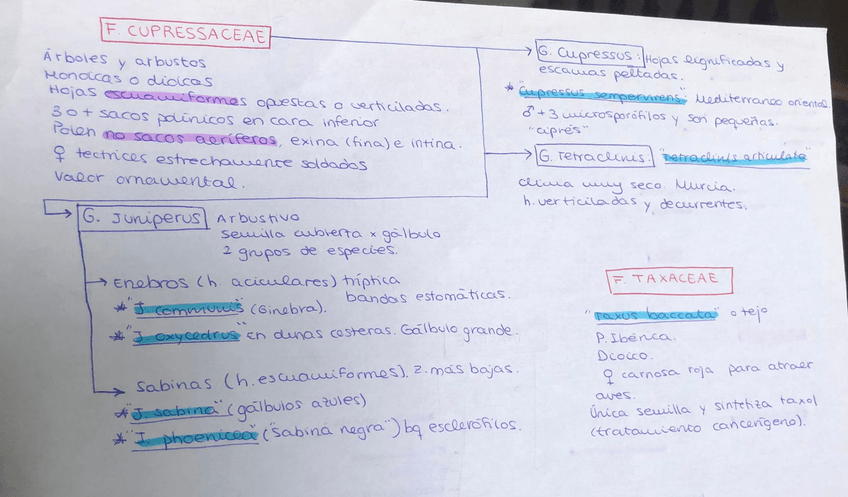 F. CUPRESSACEAE
Árboles y arbustos
Monoicas o dioicas
Hojas escuamiformes opuestas o verticiladas.
3 o + sacos polínicos en cara inferior
Polen no sacos aeríferos, exina (fina) e intina.
♀ tectrices estrechamente soldados
Valor ornamental.
G. Cupressus: Hojas lignificadas y
escamas peltadas.
* "Cupressus sempervirens": Mediterraneo oriental.
♂ + 3 microsporófilos y son pequeñas.
"ciprés"
G. Tetraclinis: "tetraclinis articulata"
clima muy seco. Murcia.
h. verticiladas y decurrentes.
G. Juniperus Arbustivo
semilla cubierta x gálbulo
2 grupos de especies.
Enebros (h. aciculares) tríptica
bandas estomáticas.
* "J. communis" (Ginebra).
* "J. oxycedrus" En dunas costeras. Gálbulo grande.
Sabinas (h. escuamiformes). z. más bajas.
* "J. sabina" (gálbulos azules)
* "J. phoenicea" ("sabina negra") bq esclerófilos.
F. TAXACEAE
"taxus baccata" o tejo
P. Ibérica.
Dioico.
♀ carnosa roja para atraer
aves.
Única semilla y sintetiza taxol
(tratamiento cancerígeno).